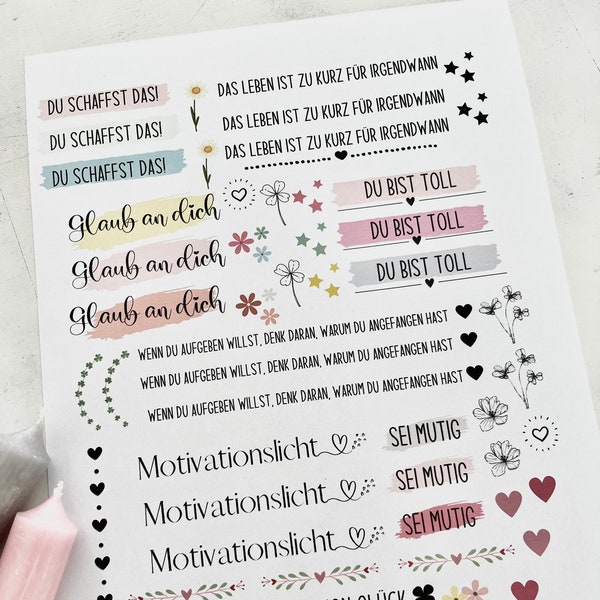 DU SCHAFFST DAS!
DU SCHAFFST DAS!
DU SCHAFFST DAS!
DAS LEBEN IST ZU KURZ FÜR IRGENDWANN
DAS LEBEN IST ZU KURZ FÜR IRGENDWANN
DAS LEBEN IST ZU KURZ FÜR IRGENDWANN
Glaub an dich
Glaub an dich
Glaub an dich
DU BIST TOLL
DU BIST TOLL
DU BIST TOLL
WENN DU AUFGEBEN WILLST, DENK DARAN, WARUM DU ANGEFANGEN HAST
WENN DU AUFGEBEN WILLST, DENK DARAN, WARUM DU ANGEFANGEN HAST
WENN DU AUFGEBEN WILLST, DENK DARAN, WARUM DU ANGEFANGEN HAST
Motivationslicht
Motivationslicht
Motivationslicht
SEI MUTIG
SEI MUTIG
SEI MUTIG
GLÜCK